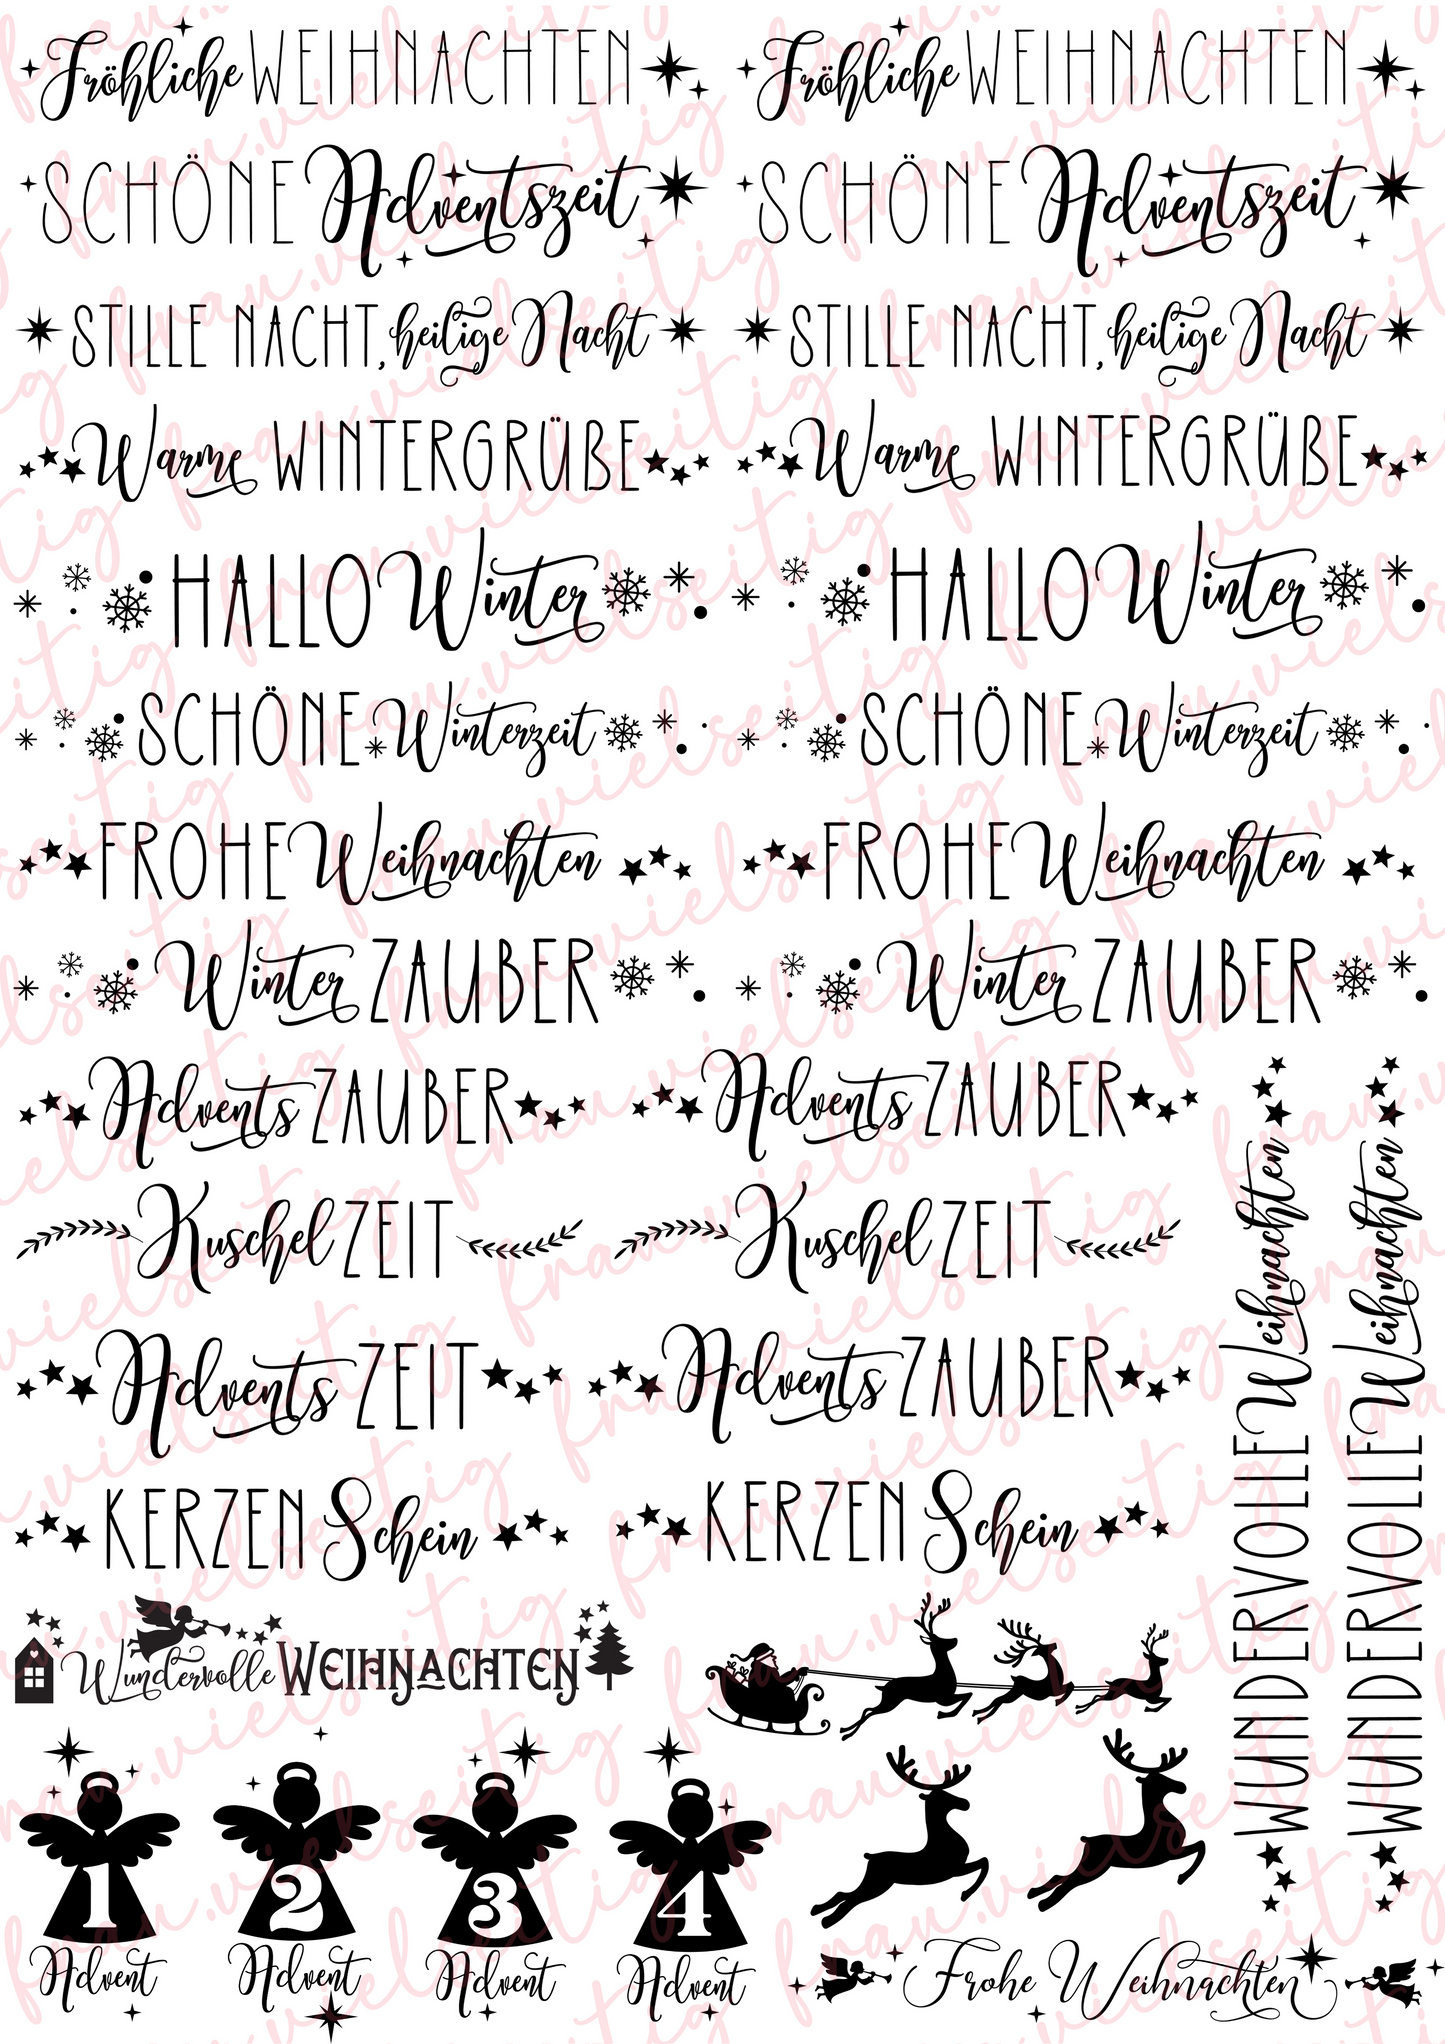 Fröhliche WEIHNACHTEN
Fröhliche WEIHNACHTEN
SCHÖNE Adventszeit
SCHÖNE Adventszeit
STILLE NACHT, heilige Nacht
STILLE NACHT, heilige Nacht
Warme WINTERGRÜßE
Warme WINTERGRÜßE
HALLO Winter
HALLO Winter
SCHÖNE Winterzeit
SCHÖNE Winterzeit
FROHE Weihnachten
FROHE Weihnachten
Winter ZAUBER
Winter ZAUBER
Advents ZAUBER
Advents ZAUBER
Kuschel ZEIT
Kuschel ZEIT
Advents ZEIT
Advents ZAUBER
KERZEN Schein
KERZEN Schein
WUNDERVOLLE Weihnachten
WUNDERVOLLE Weihnachten
Wundervolle WEIHNACHTEN
1
Advent
2
Advent
3
Advent
4
Advent
Frohe Weihnachten
frau.vielseitig